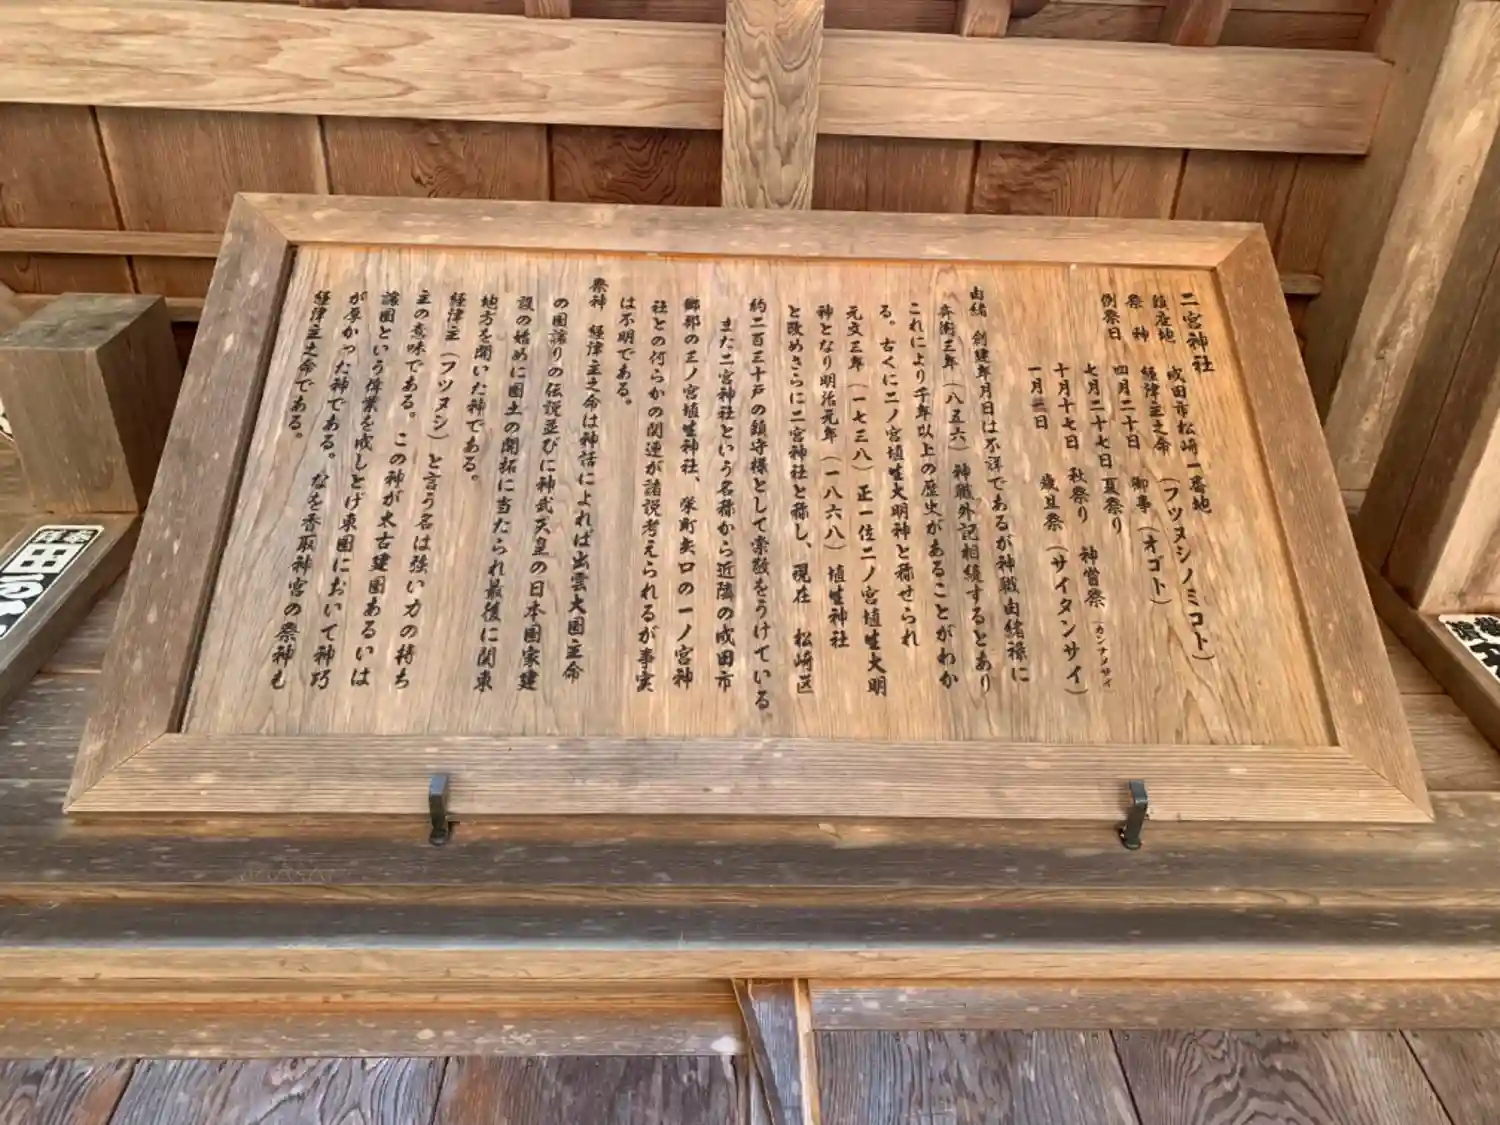 二宮神社
鎮座地 成田市松崎一番地
祭神 経津主之命（フツヌシノミコト）
例祭日 四月二十日 御事（オゴト）
七月二十七日 夏祭り
十月十七日 秋祭り 神嘗祭（カンナメサイ
一月一日 歳旦祭（サイタンサイ）
由緒 創建年月日は不詳であるが神職由緒禄に
斉衡三年（八五六）神職外記相続するとあり
これにより千年以上の歴史があることがわか
る。古くに二ノ宮埴生大明神と称せられ
元文三年（一七三八）正一位二ノ宮埴生大明
神となり明治元年（一八六八）埴生神社
と改めさらに二宮神社と称し、現在 松崎区
約二百三十戸の鎮守様として崇敬をうけている
また二宮神社という名称から近隣の成田市
郷部の三ノ宮埴生神社、栄町矢口の一ノ宮神
社との何らかの関連が諸説考えられるが事実
は不明である。
祭神 経津主之命は神話によれば出雲大国主命
の国譲りの伝説並びに神武天皇の日本国家建
設の始めに国土の開拓に当たられ最後に関東
地方を開いた神である。
経津主（フツヌシ）と言う名は強い力の持ち
主の意味である。この神が太古建国あるいは
譲国という偉業を成しとげ東国において神巧
が厚かった神である。なを香取神宮の祭神も
経津主之命である。